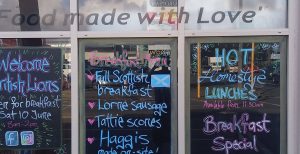 Food made with Love'
Welcome
British Lions
en for breakfast
Sat 10 June
Breakfast
Full Scottish
breakfast
Lorne Sausage
Tattie scones
Haggis
made on-site!
HOT
Homestyle
LUNCHES
Available from 11.30am
Breakfast
Special